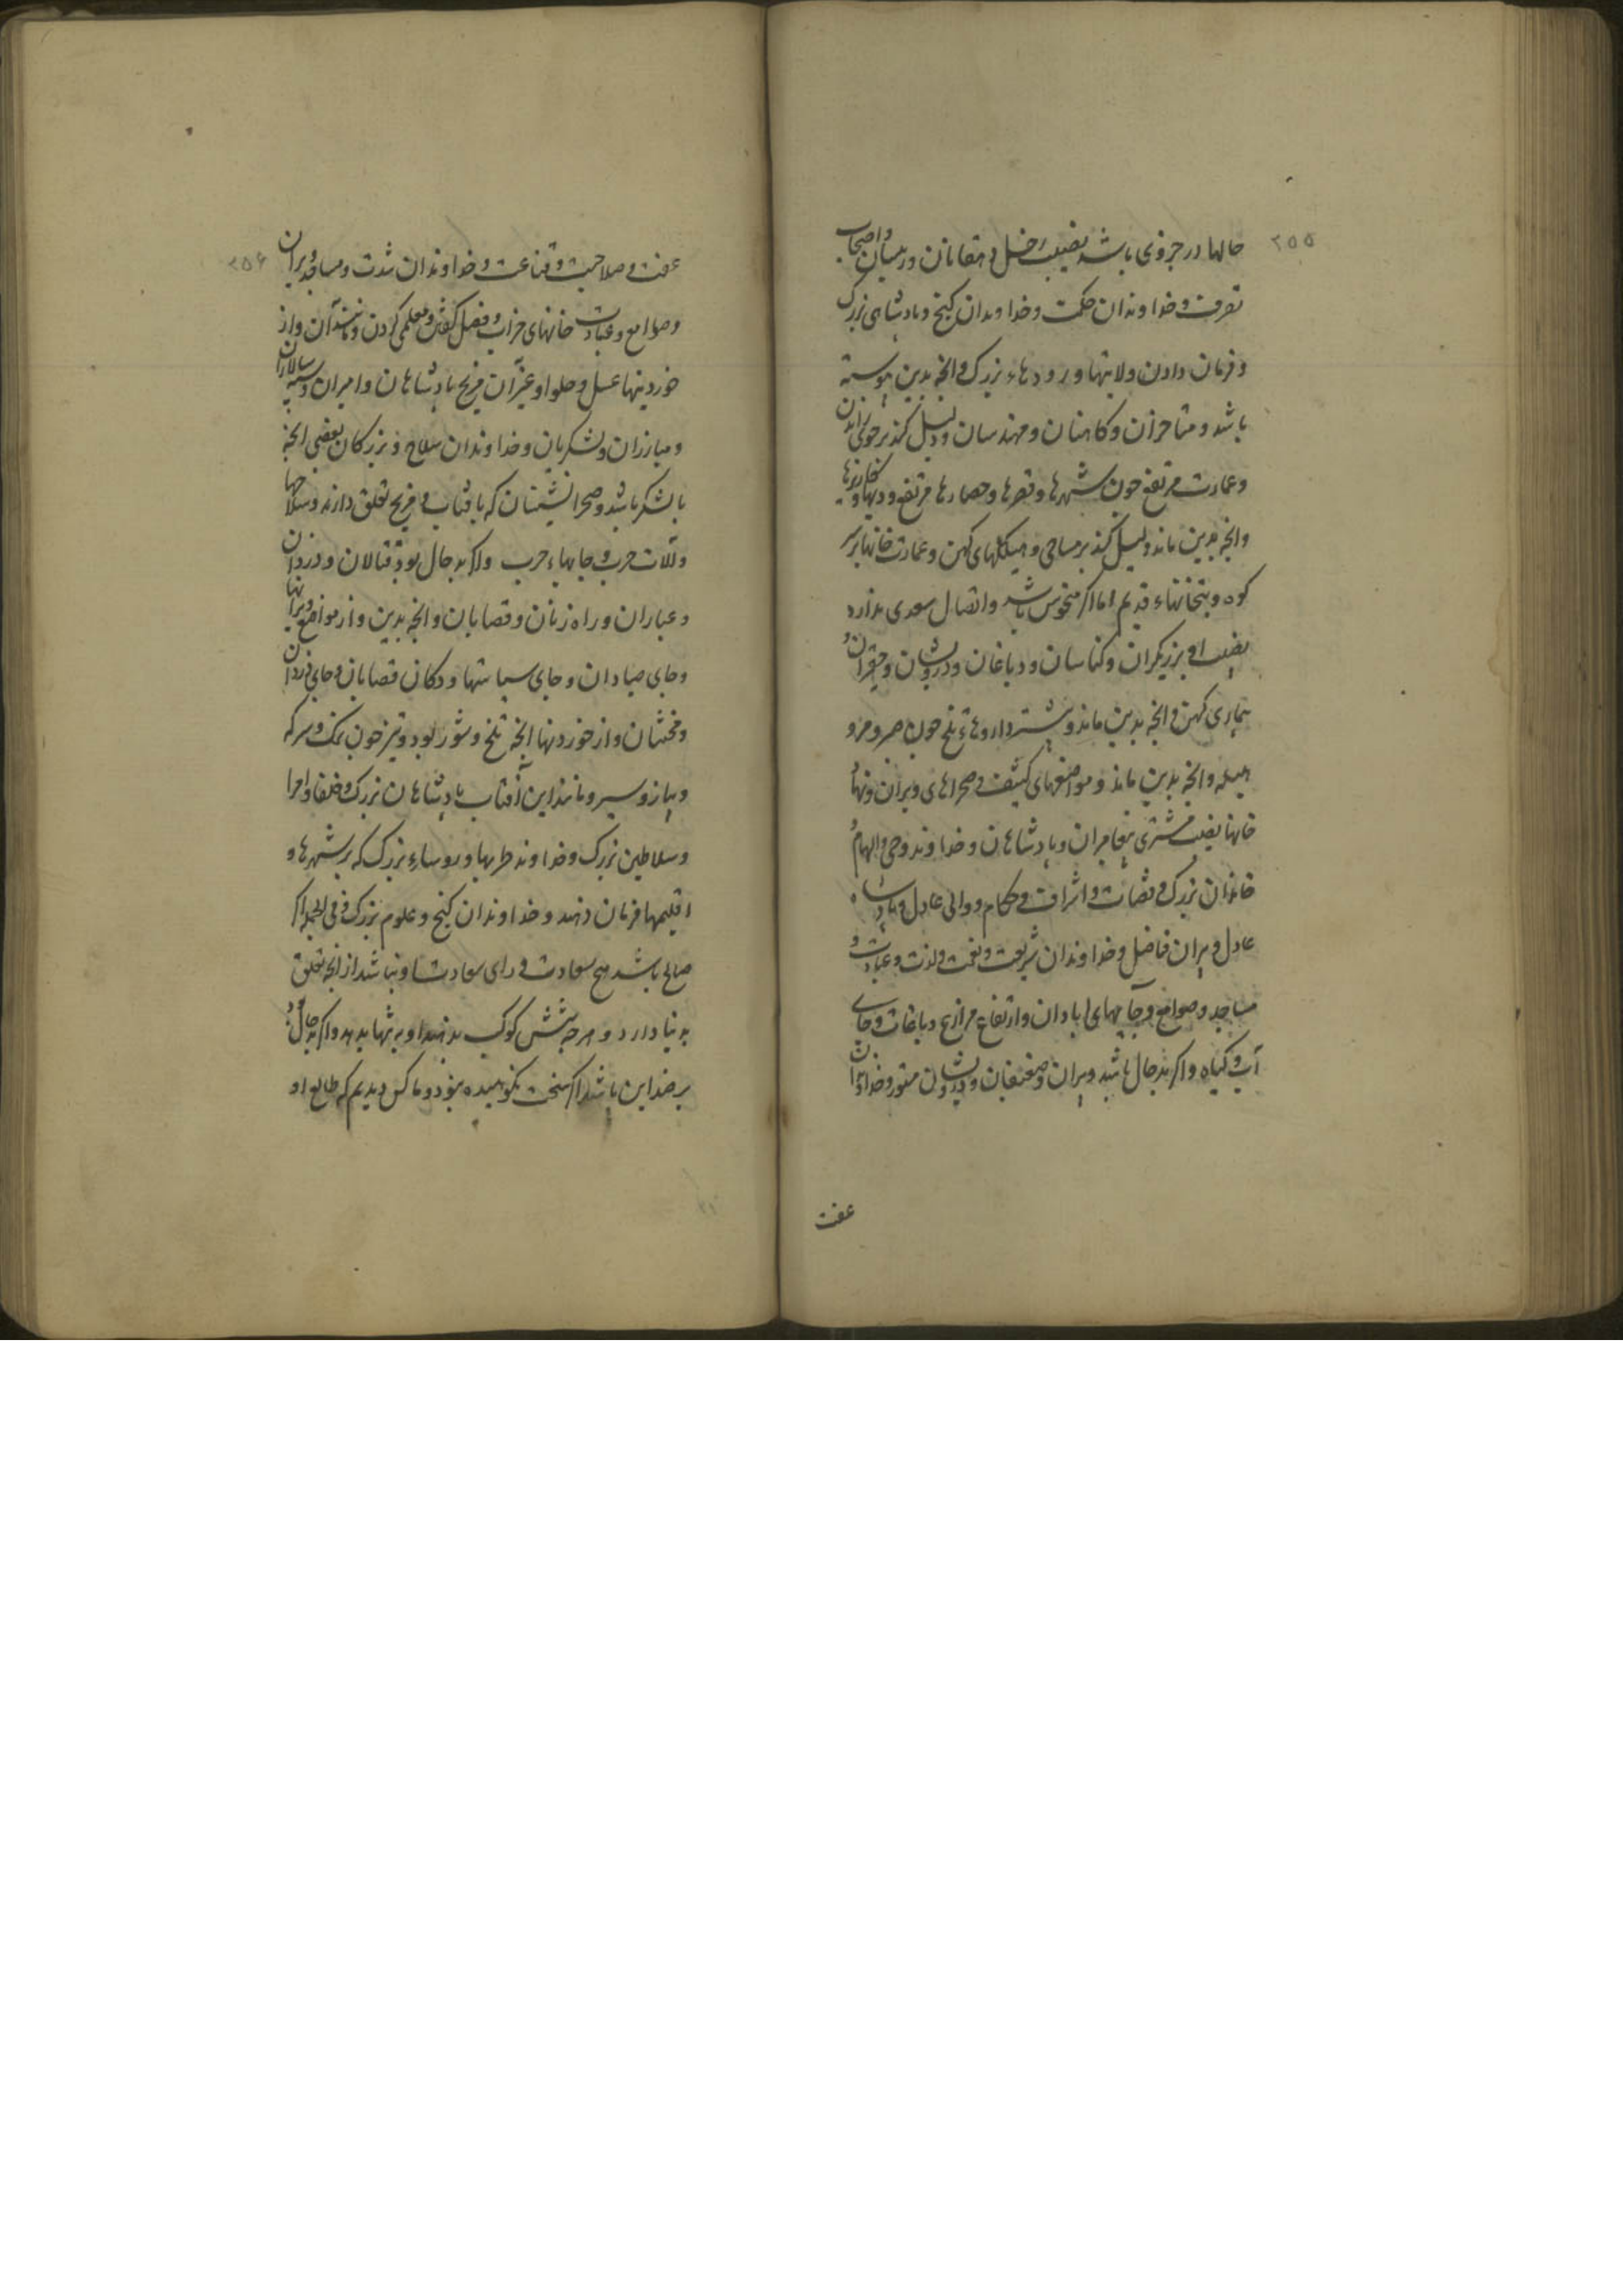 ۲۵۵
حالها در جزوی باشد نصیب زحل دهقانان و رئیسان و اصحاب
تصرف و خداوندان حکمت و خداوندان گنج و بادشاهی بزرک
و فرمان دادن ولایتها و رودهاء بزرک و انچه بدین پیوسته
باشد و متاخران و کاهنان و مهندسان و دلیل کند بر
و عمارت مرتفع چون شهرها و قصرها و حصارها مرتفع و دیها و
و انچه بدین ماند و دلیل کند بر مساحی و هیکلهای کهن و عمارت خانها بر سر
کوه و بتخانهاء قدیم اما اکر منحوس باشد و اتصال سعدی ندارد
نصیب او بزریکران و کناسان و دباغان و درویشان و حقیران و
بیماری کهن و انچه بدین ماند و بیشتر داروهاء تلخ چون صبر و مر و
هلیله و انچه بدین ماند و موضعهای کثیف و صحراهای ویران و تنها و
خانها نصیب مشتری پیغامبران و پادشاهان و خداوند وحی و الهام و
خاندان بزرک و قضات و اشراف و حکام و والی عادل و پادشاه
عادل و پیران فاضل و خداوندان شریعت و نعمت و لذت و عبادت و
مساجد و صوامع و جایهای ابادان و ارتفاع مزارع و باغات و جای
آب و کیاه و اکر بدحال باشد پیران و ضعیفان و درویشان مستور و خداوندان
عفت
۲۵۶
عفت و صلاحیت و قناعت و خداوندان شدت و مساجد ویران
و صوامع و عبادت خانهای خراب و فصل کفش و معلمی کردن و مانند آن و از
خوردنیها عسل و حلوا و غیر آن مریخ پادشاهان و امیران و سپه سالاران
و مبارزان و لشکریان و خداوندان سلاح و بزرکان بعضی انچه
با لشکر باشد و صحرانشینان که بافتاب و مریخ تعلق دارند و سلاحها
و آلات حرب و جایهاء حرب و اکر بدحال بود قتالان و دزدان
و عیاران و راه زنان و قصابان و انچه بدین و از مواضع ویرانها
و جای صیادان و جای سیاستها و دکان قصابان و جای دزدان
و مخنثان و از خوردنها انچه تلخ و شور بود و تیز چون نمک و سرکه
و پیاز و سیر و مانند این آفتاب پادشاهان بزرک و خلفا و امرا
و سلاطین بزرک و خداوند طربها و روساء بزرک که بر شهرها و
اقلیمها فرمان دهند و خداوندان گنج و علوم بزرک و فی الجمله اکر
صالح باشد هیچ سعادت ورای سعادت او نباشد از انچه تعلق
بدنیا دارد و هرچه شش کوکب بدهند او به تنها بدهد و اکر بدحال بود
بر ضد این باشد اکر سخت نکوهیده بود و ما کس دیدیم که طالع او